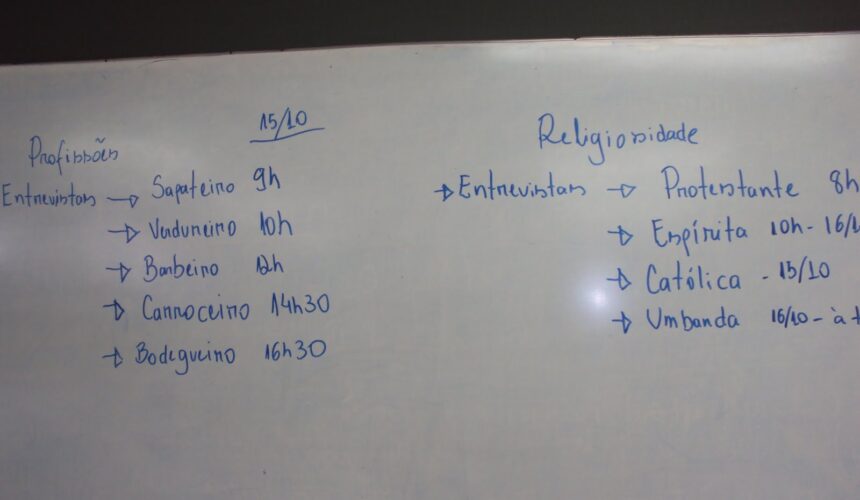 15/10
Profissões
Entrevistas → Sapateiro 9h
→ Verdureiro 10h
→ Barbeiro 12h
→ Carroceiro 14h30
→ Bodegueiro 16h30
Religiosidade
→ Entrevistas → Protestante 8h
→ Espírita 10h - 16/1
→ Católica - 15/10
→ Umbanda 16/10 - à t